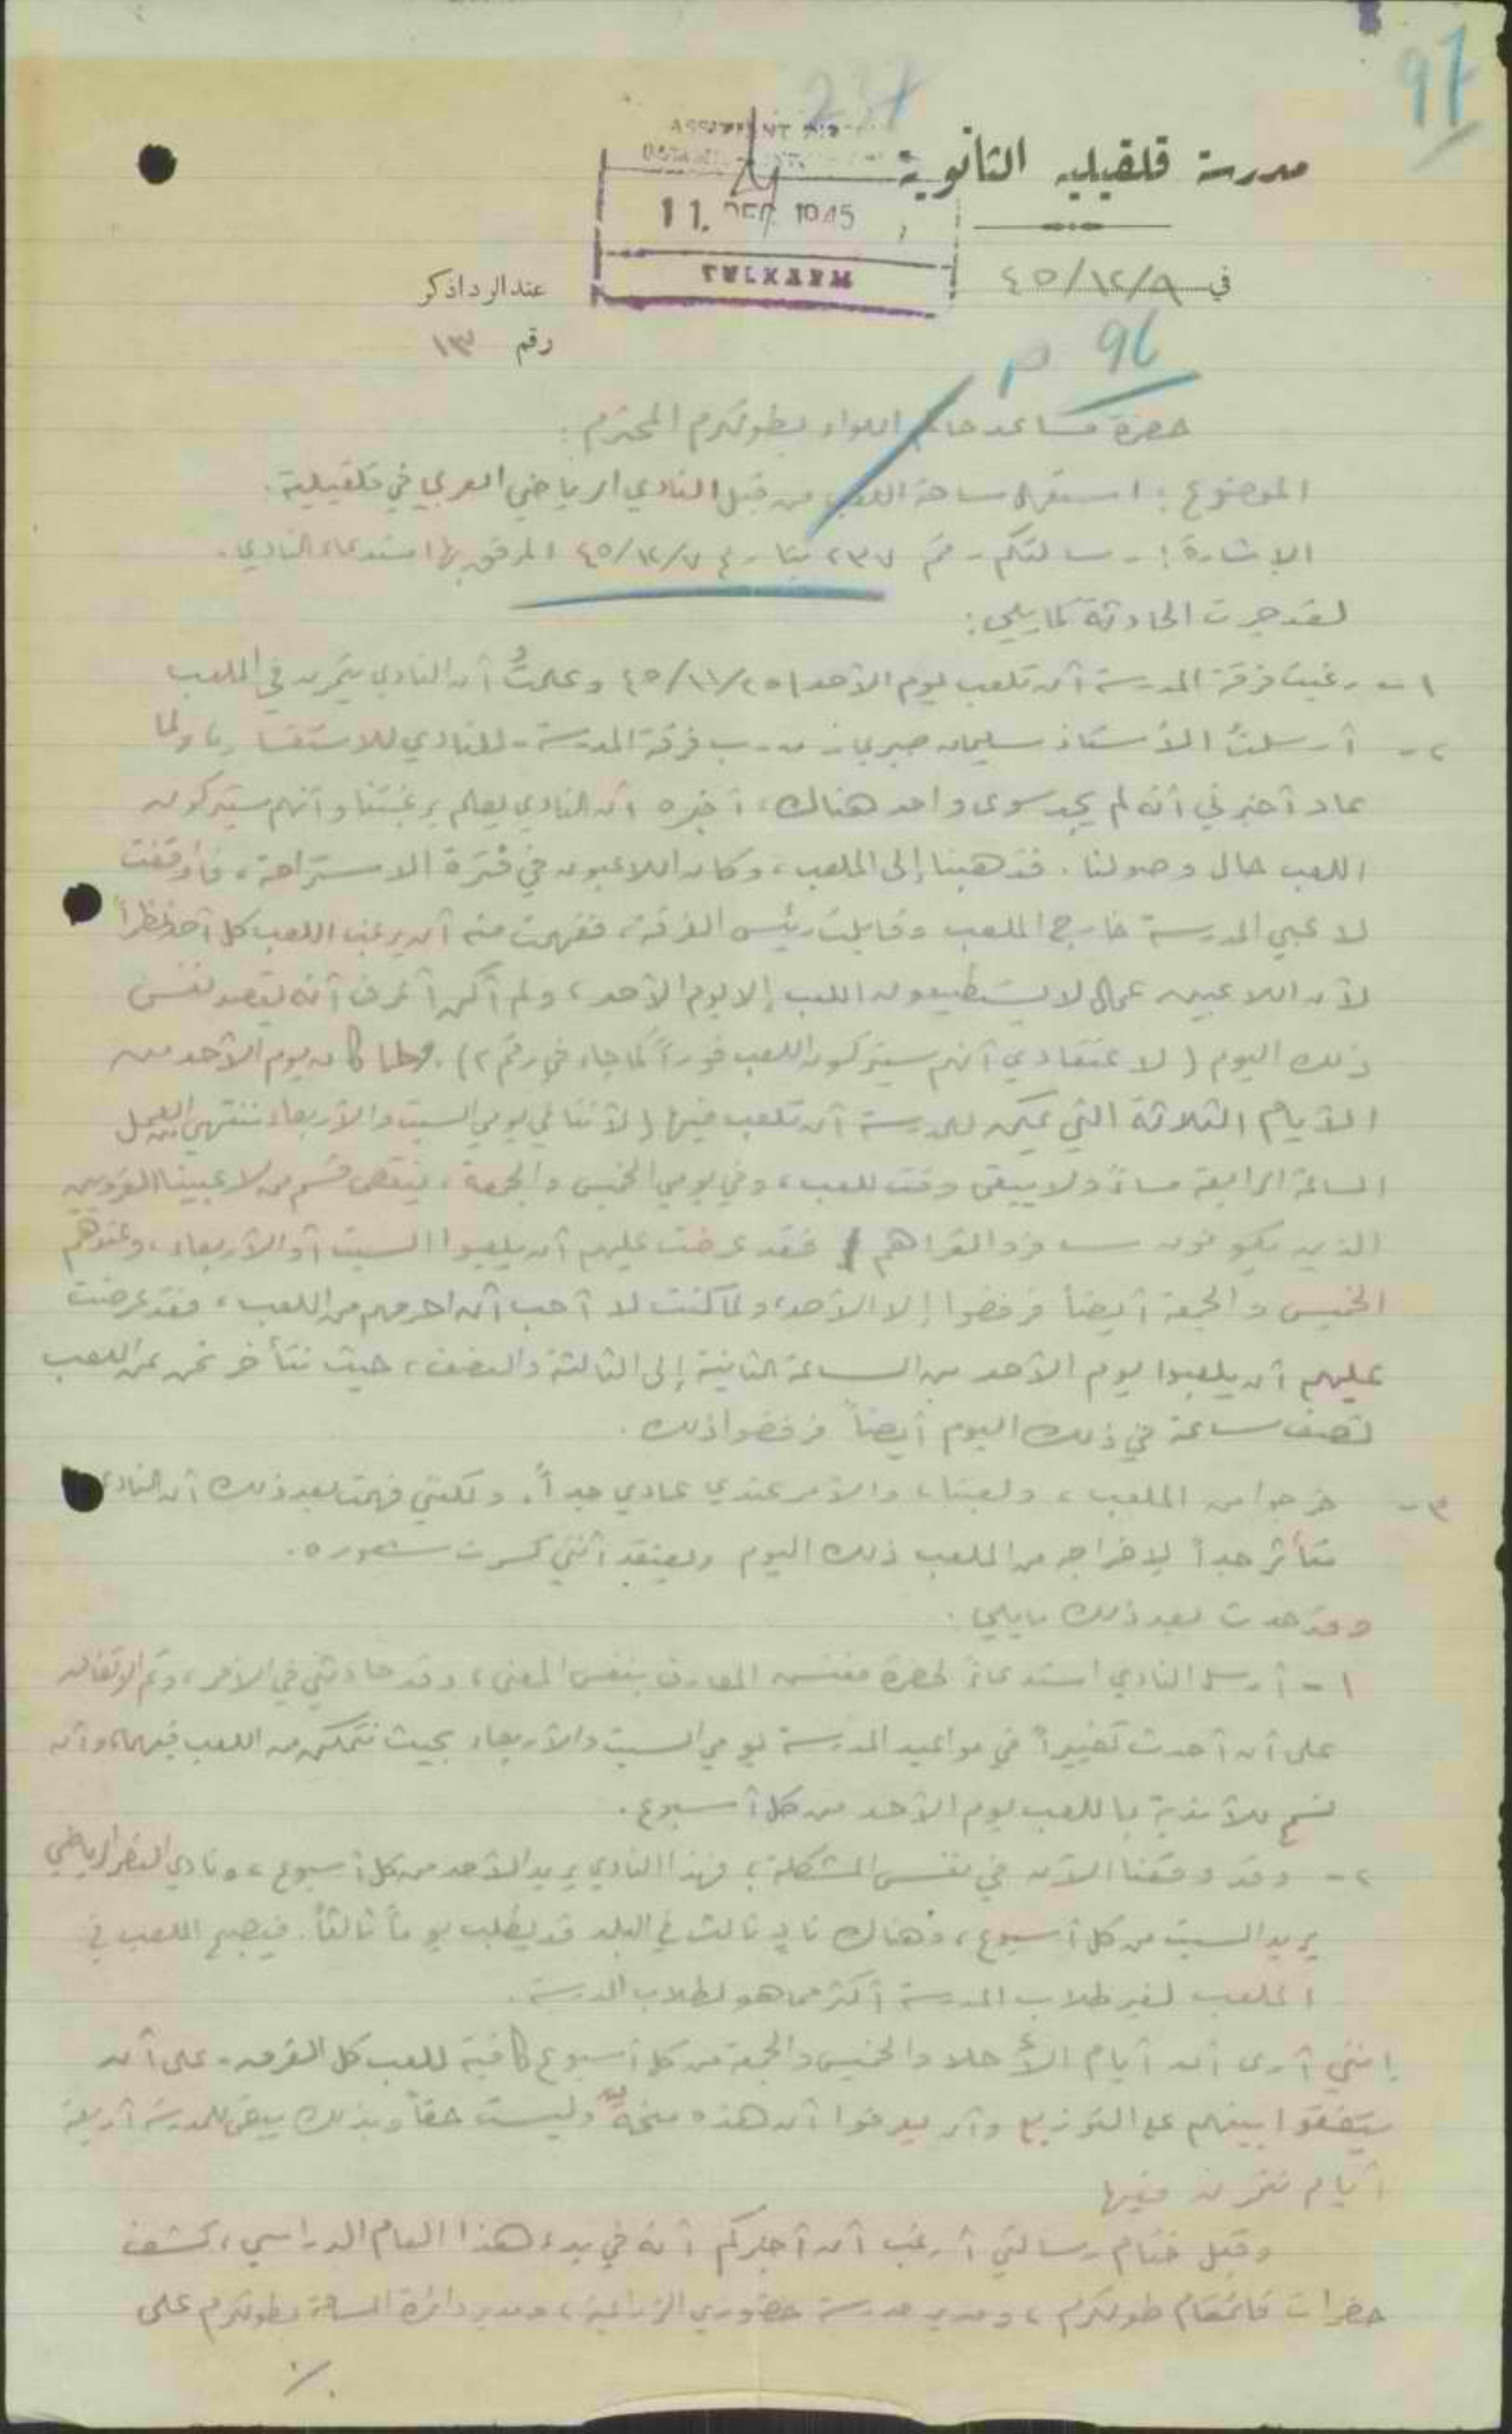 97
237
ASSISTANT
مدرسة قلقيلية الثانوية
11. DEC 1945
TULKARM
في ٤٥/١٢/٩
عند الرد اذكر
رقم ١٣
96
حضرة مساعد حاكم اللواء بطولكرم المحترم:
الموضوع: استعمال ساحة اللعب من قبل النادي الرياضي العربي في قلقيلية.
الإشارة: رسالتكم رقم ٢٣٧ بتاريخ ٤٥/١٢/٧ المرفق بها استدعاء النادي.
لقد جرت الحادثة كما يلي:
١- رغبت فرقة المدرسة أن تلعب يوم الأحد ٤٥/١١/٢٥ وعلمتُ أن النادي يتمرن في الملعب
٢- أرسلتُ الأستاذ سليمان صبري مدرب فرقة المدرسة للنادي للاستفسار، ولما
عاد أخبرني أنه لم يجد سوى واحد هناك، أخبره أن النادي يعلم برغبتنا وأنهم سيتركون
اللعب حال وصولنا. فذهبنا إلى الملعب، وكان اللاعبون في فترة الاستراحة، فأوقفت
لاعبي المدرسة خارج الملعب وقابلت رئيس الفرقة، ففهمت منه أنه يرغب اللعب كل أحد نظراً
لأن اللاعبين عمال لا يستطيعون اللعب إلا يوم الأحد، ولم أكن أعرف أنه يقصد نفس
ذلك اليوم (لاعتقادي أنهم سيتركون اللعب فوراً كما جاء في رقم ٢). ولما كان يوم الأحد من
الأيام الثلاثة التي يمكن للمدرسة أن تلعب فيها (لأننا في يومي السبت والأربعاء ننتهي العمل
الساعة الرابعة مساءً ولا يبقى وقت للعب، وفي يومي الخميس والجمعة، ينقص قسم من لاعبينا القرويين
الذين يكونون سافروا لقراهم) فقد عرضت عليهم أن يلعبوا السبت أو الأربعاء، وعندهم
الخميس والجمعة أيضاً فرفضوا إلا الأحد، ولما كنت لا أحب أن احرمهم من اللعب، فقد عرضت
عليهم أن يلعبوا يوم الأحد من الساعة الثانية إلى الثالثة والنصف، حيث نتأخر نحن عن اللعب
نصف ساعة في ذلك اليوم أيضاً فرفضوا ذلك.
٣- خرجوا من الملعب، ولعبنا، والأمر عندي عادي جداً. ولكنني فهمت بعد ذلك أن النادي
متأثر جداً لإخراجه من الملعب ذلك اليوم ويعتقد أنني كسرت شعوره.
وقد حدث بعد ذلك ما يلي:
١- أرسل النادي استدعاءً لحضرة مفتش المعارف بنفس المعنى، وقد حادثني في الأمر، وتم الاتفاق
على أن أحدث تغييراً في مواعيد المدرسة يومي السبت والأربعاء بحيث نتمكن من اللعب فيهما، وأن
نسمح للأندية باللعب يوم الأحد من كل أسبوع.
٢- وقد وقعنا الآن في نفس المشكلة؛ فهذا النادي يريد الأحد من كل أسبوع، ونادي النصر الرياضي
يريد السبت من كل أسبوع، وهناك نادٍ ثالث في البلد قد يطلب يوماً ثالثاً. فيصبح اللعب في
الملعب لغير طلاب المدرسة أكثر مما هو لطلاب المدرسة.
إنني أرى أن أيام الأحد والخميس والجمعة من كل أسبوع كافية للعب كل الفرق على أن
يتفقوا بينهم على التوزيع وأن يعرفوا أن هذه منحة وليست حقاً وبذلك يبقى للمدرسة أربعة
أيام نتمرن فيها
وقبل ختام رسالتي أرغب أن أخبركم أنه في بدء هذا العام الدراسي، كشف
حضرات قائمقام طولكرم، ومدير مدرسة خضوري الزراعية، ومدير دائرة المساحة بطولكرم على
./.